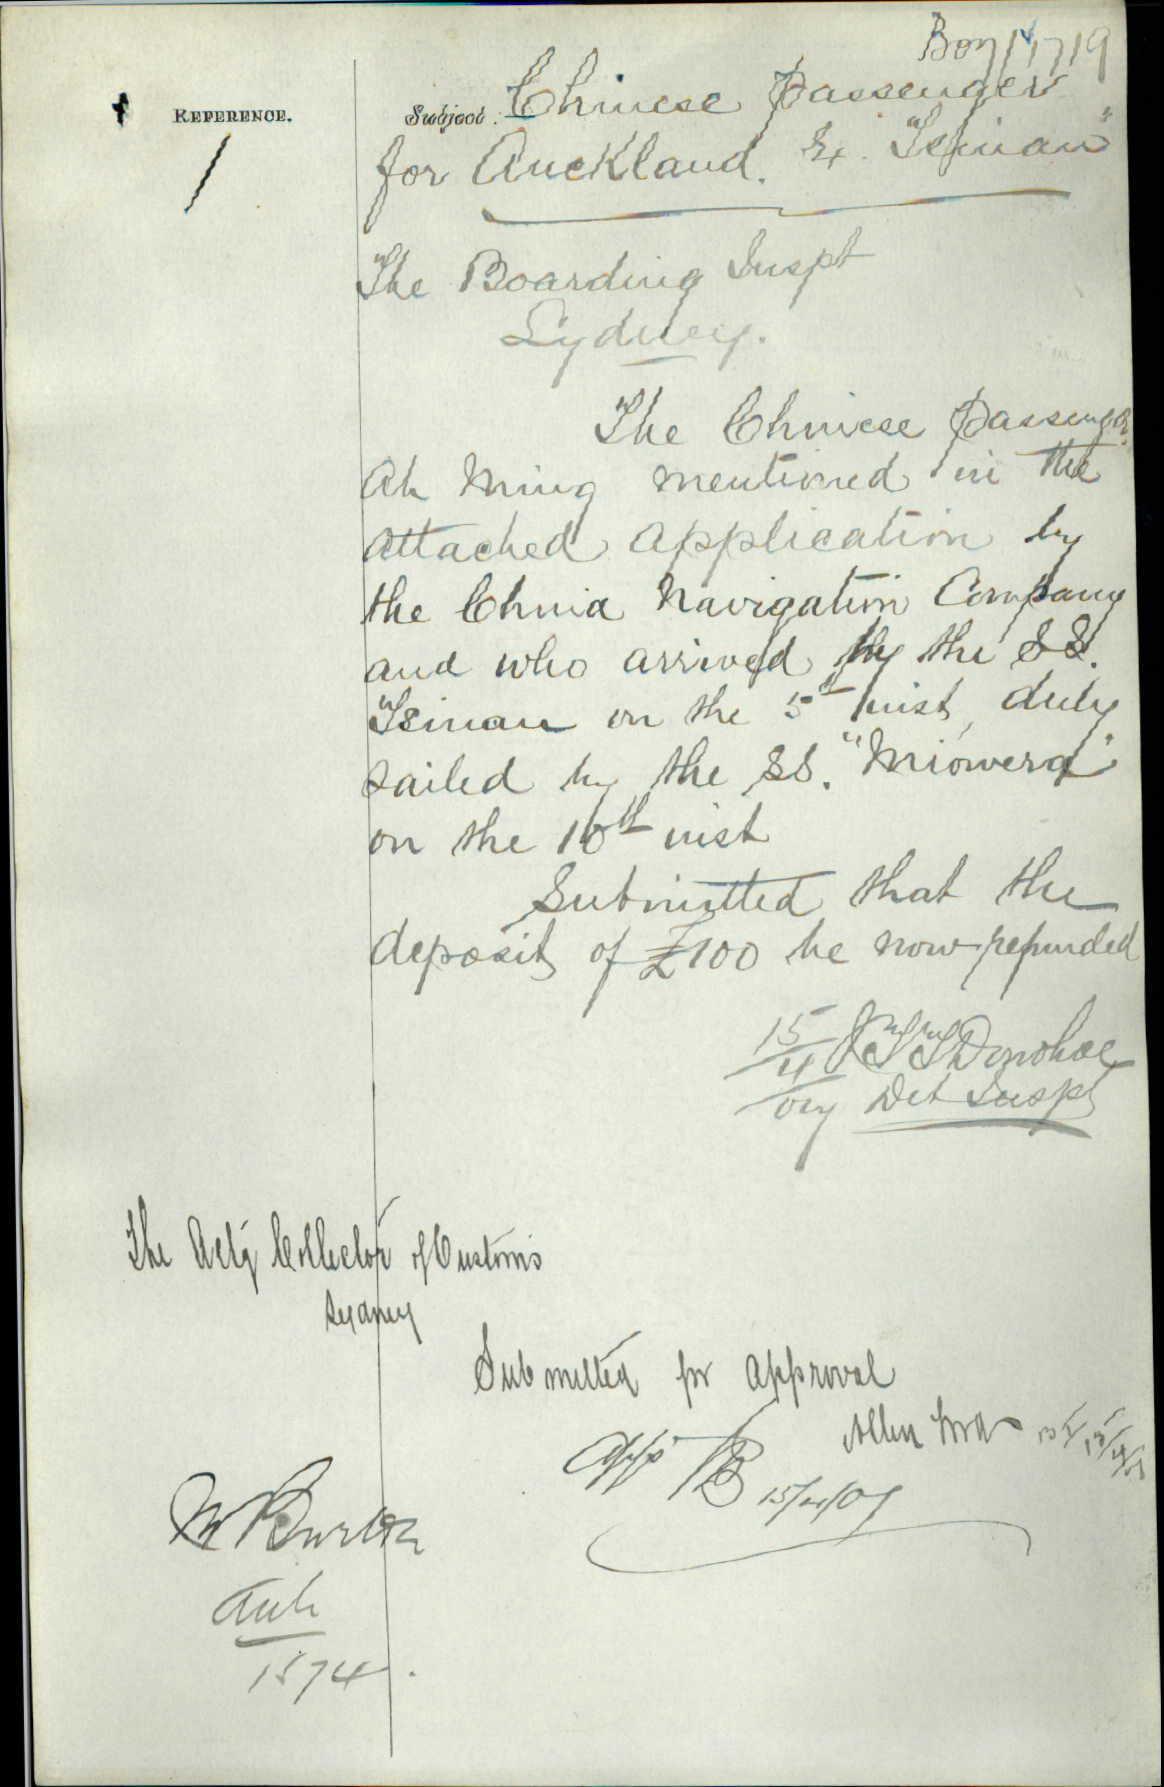 Boy 1719
REFERENCE.
1
Subject: Chinese passenger
for Auckland. Ex. "Tsinan"
The Boarding Inspt
Sydney.
The Chinese passenger
Ah Ming mentioned in the
attached application by
the China Navigation Company
and who arrived by the SS.
Tsinan on the 5th inst, duly
sailed by the SS. "Miowera"
on the 10th inst
Submitted that the
deposit of £100 be now refunded
15/4/07 J T T Donohoe
Det Inspt
The Actg Collector of Customs
Sydney
Submitted for approval
App
15/4/07
W Burton
15/4.